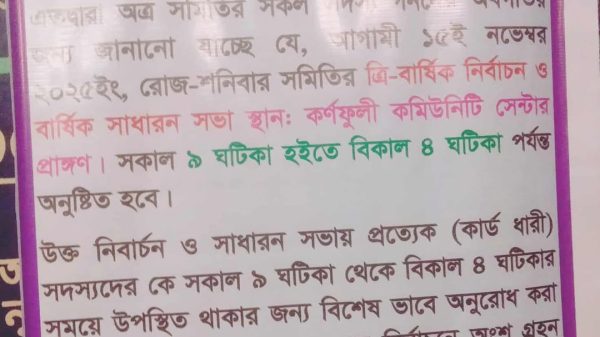 এতদ্বারা অত্র সমিতির সকল
জন্য জানানো যাচ্ছে যে, আগামী ১৫ই নভেম্বর
২০২৫ইং, রোজ-শনিবার সমিতির ত্রি-বার্ষিক নির্বাচন ও
বার্ষিক সাধারন সভা স্থান: কর্ণফুলী কমিউনিটি সেন্টার
প্রাঙ্গণ। সকাল ৯ ঘটিকা হইতে বিকাল ৪ ঘটিকা পর্যন্ত
অনুষ্ঠিত হবে।
উক্ত নির্বাচন ও সাধারন সভায় প্রত্যেক (কার্ড ধারী)
সদস্যদের কে সকাল ৯ ঘটিকা থেকে বিকাল ৪ ঘটিকার
সময়ে উপস্থিত থাকার জন্য বিশেষ ভাবে অনুরোধ করা
নির্বাচনে অংশ গ্রহন